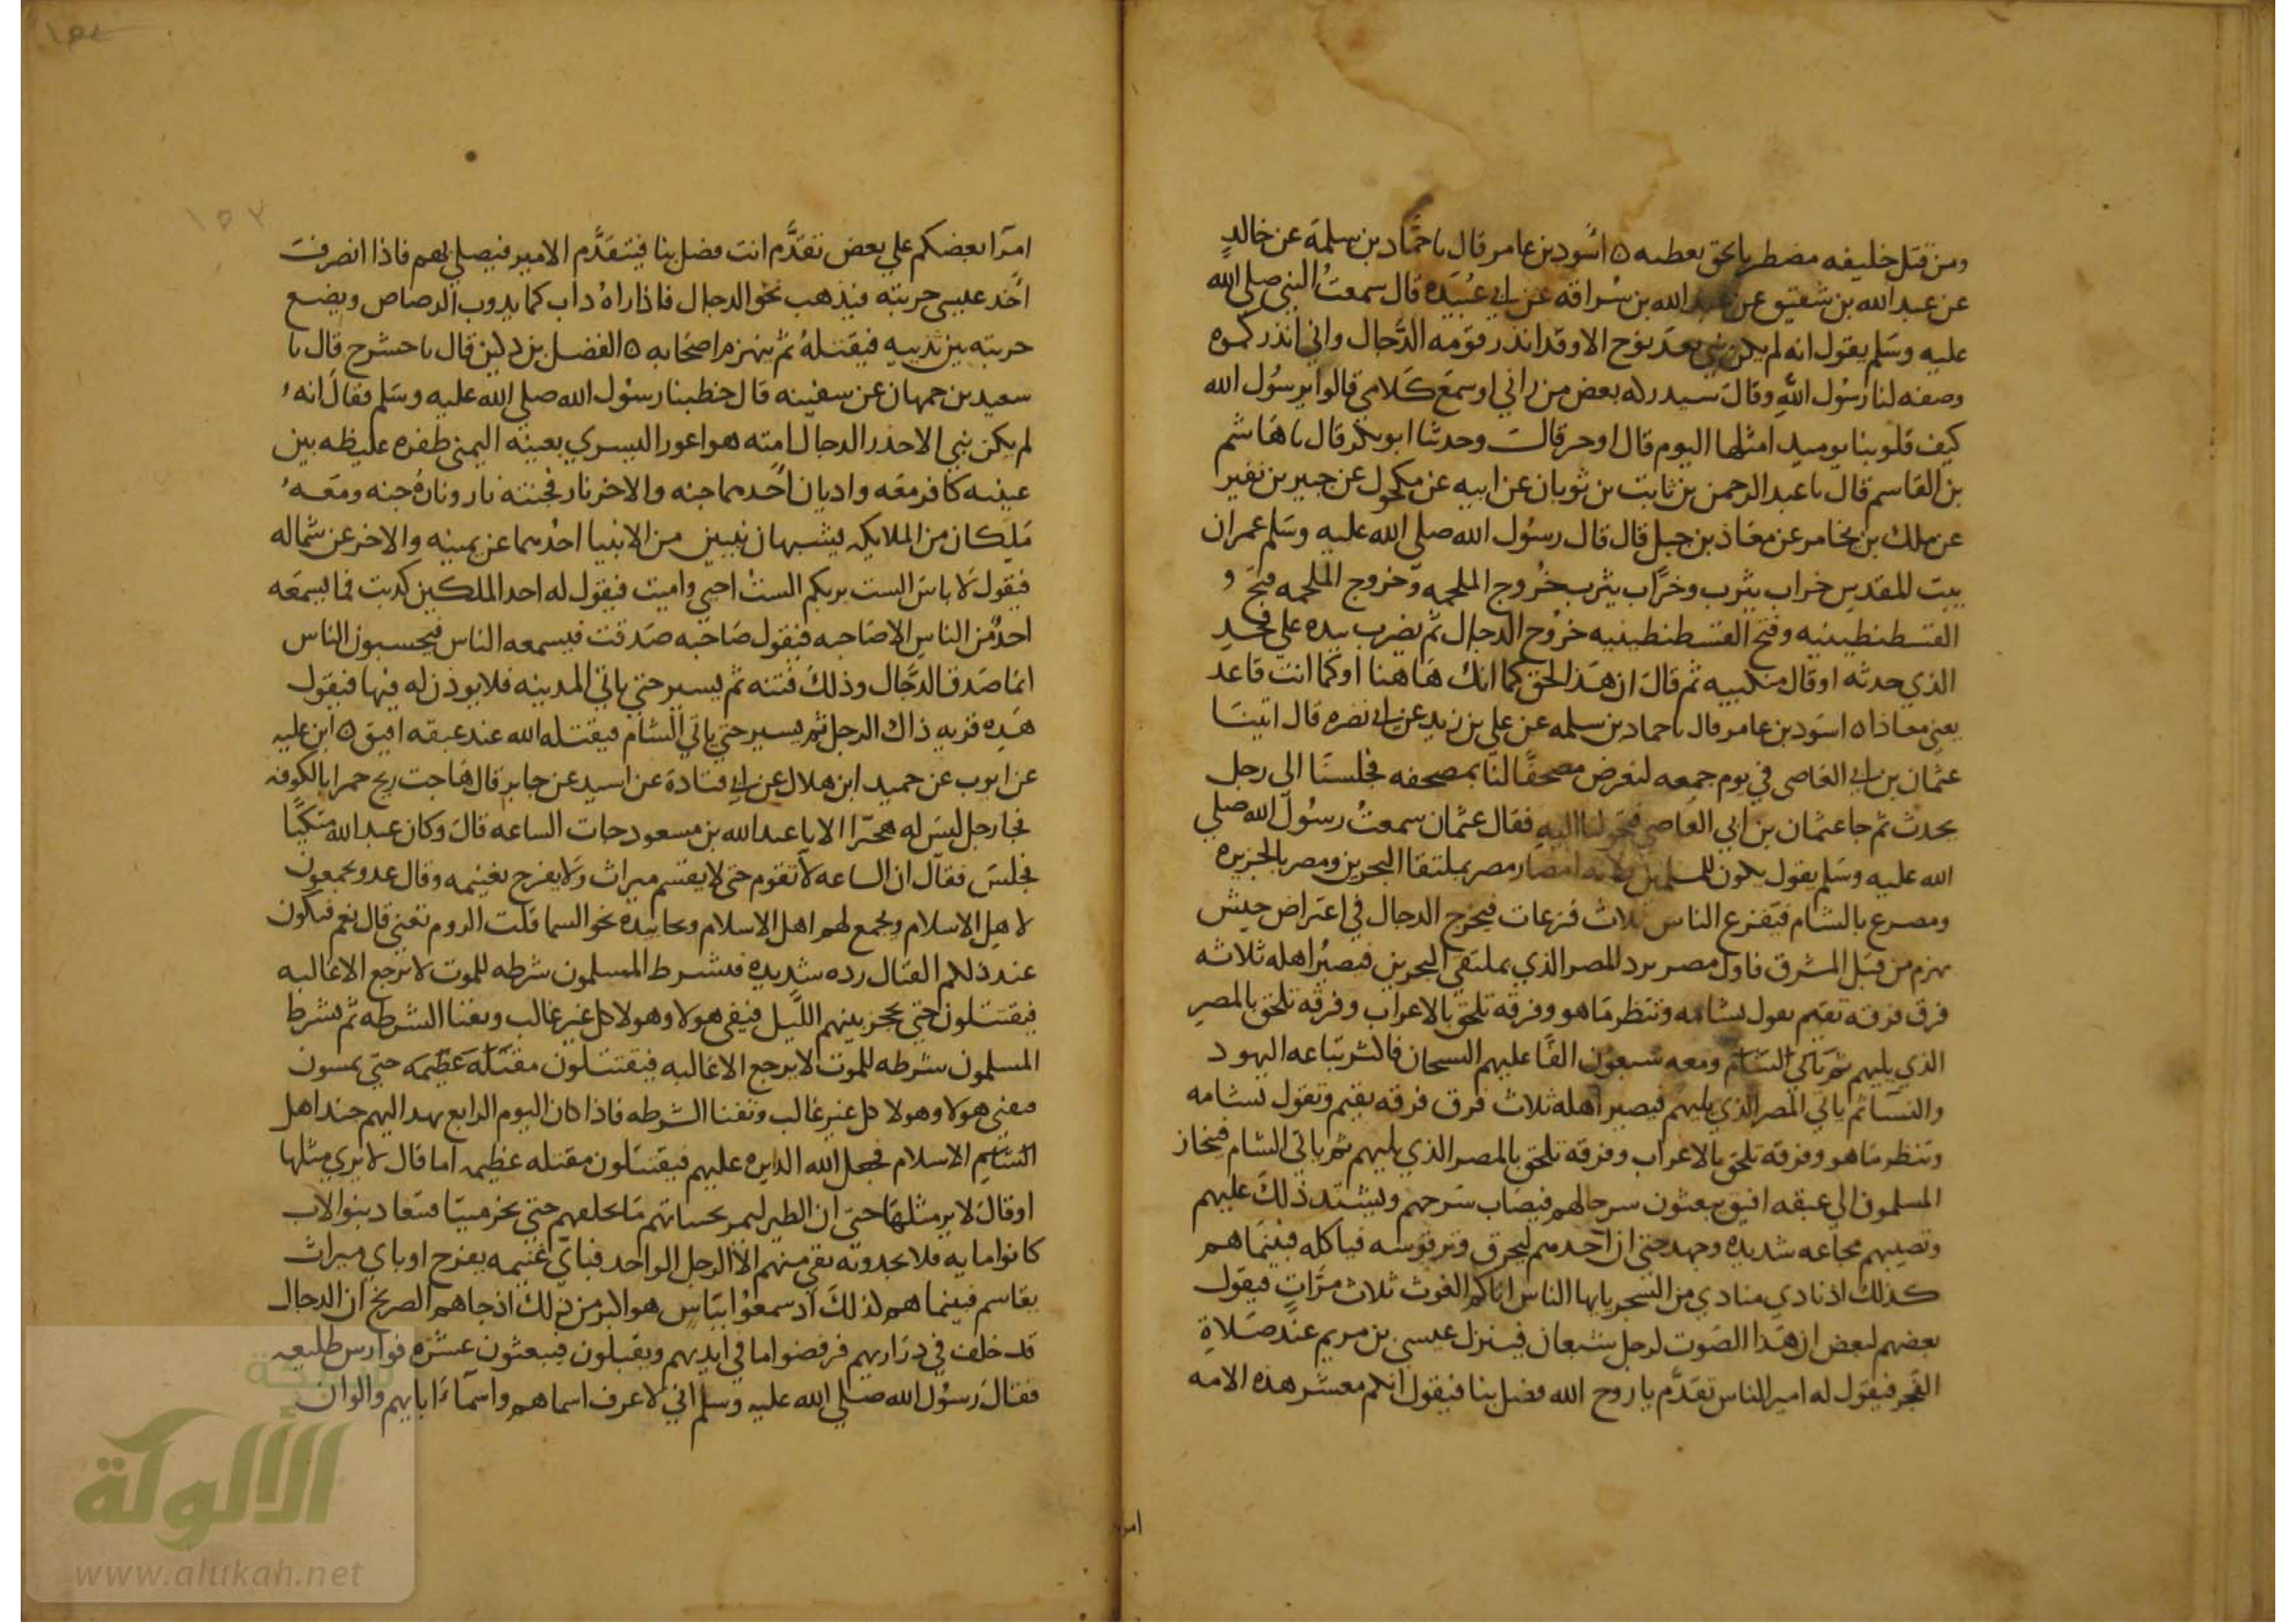 ومن قبل خليفه مضطر بالحق يعطيه ٥ اسود بن عامر قال نا حماد بن سلمة عن خالد
عن عبد الله بن شقيق عن عبد الله بن سراقه عن ابي عبيده قال سمعت النبي صلي الله
عليه وسلم يقول انه لم يكن نبي بعد نوح الا وقد انذر قومه الدجال واني انذركموه
وصفه لنا رسول الله وقال سيدركه بعض من راني او سمع كلامي قالوا يرسول الله
كيف قلوبنا يوميد امثلها اليوم قال او خير قال وحدثنا ابو بكر قال نا هاشم
بن القاسم قال نا عبد الرحمن بن ثابت بن ثوبان عن ابيه عن مكحول عن جبير بن نفير
عن ملك بن يخامر عن معاذ بن جبل قال قال رسول الله صلي الله عليه وسلم عمران
بيت المقدس خراب يثرب وخراب يثرب خروج الملحمه وخروج الملحمه فتح
القسطنطينيه وفتح القسطنطينيه خروج الدجال ثم يضرب بيده علي فخد
الذي حدثه او قال منكبيه ثم قال ان هذا لحق كما انك هاهنا او كما انت قاعد
يعني معاذا ٥ اسود بن عامر قال نا حماد بن سلمه عن علي بن زيد عن ابي نضره قال اتينا
عثمان بن ابي العاصي في يوم جمعه لنعرض مصحفا لنا بمصحفه فجلسنا الي رجل
يحدث ثم جا عثمان بن ابي العاصي فتحولنا اليه فقال عثمان سمعت رسول الله صلي
الله عليه وسلم يقول يكون للمسلمين ثلاثه امصار مصر بملتقا البحرين ومصر بالجزيره
ومصر ع بالشام فيفزع الناس ثلاث فزعات فيخرج الدجال في اعتراض جيش
يهزم من قبل المشرق فاول مصر يرد المصر الذي بملتقي البحرين فيصير اهله ثلاثه
فرق فرقه تقيم تقول نشامه وننظر ما هو وفرقه تلحق بالاعراب وفرقه تلحق بالمصر
الذي يليهم ثم ياتي الشام ومعه سبعون الفا عليهم السيحان فاكثر تباعه اليهود
والنسا ثم ياتي المصر الذي يليهم فيصير اهله ثلاث فرق فرقه تقيم وتقول نشامه
وننظر ما هو وفرقه تلحق بالاعراب وفرقه تلحق بالمصر الذي يليهم ثم ياتي الشام فينحاز
المسلمون الي عقبه افيق يبعثون سرحا لهم فيصاب سرحهم ويشتد ذلك عليهم
وتصيبهم مجاعه شديده وجهد حتي ان احدهم ليحرق وتر قوسه فياكله فبينما هم
كذلك اذ نادي منادي من السحر يايها الناس اتاكم الغوث ثلاث مرات فيقول
بعضهم لبعض ان هذا الصوت لرجل شبعان فينزل عيسي بن مريم عند صلاة
الفجر فيقول له امير الناس تقدم يا روح الله فصل بنا فيقول انكم معشر هذه الامه
امرا
امرا بعضكم علي بعض تقدم انت فصل بنا فيتقدم الامير فيصلي بهم فاذا انصرفت
اخد عيسي حربته فيذهب نحو الدجال فاذا راه داب كما يدوب الرصاص ويضع
حربته بين ثدييه فيقتله ثم ينهزم اصحابه ٥ الفضل بن دكين قال نا حشرج قال نا
سعيد بن جمهان عن سفينه قال خطبنا رسول الله صلي الله عليه وسلم فقال انه
لم يكن نبي الا حذر الدجال امته هو اعور اليسري بعينه اليمني ظفره غليظه بين
عينيه كافر معه واديان احدهما جنه والاخر نار فجنته نار وناره جنه ومعه
ملكان من الملايكه يشبهان نبيين من الانبيا احدهما عن يمينه والاخر عن شماله
فيقول لاناس الست بربكم الست احيي واميت فيقول له احد الملكين كدبت فما يسمعه
احد من الناس الا صاحبه فيقول صاحبه صدقت فيسمعه الناس فيحسبون الناس
انما صدق الدجال وذلك فتنه ثم يسير حتي ياتي المدينه فلا يوذن له فيها فيقول
هذه قريه ذاك الرجل ثم يسير حتي ياتي الشام فيقتله الله عند عقبه افيق ٥ ابن عليه
عن ايوب عن حميد ابن هلال عن ابي قتادة عن اسير عن جابر قال هاجت ريح حمرا بالكوفه
فجا رجل ليس له هجيرا الا يا عبد الله بن مسعود جات الساعه قال وكان عبد الله متكيا
فجلس فقال ان الساعه لا تقوم حتي لا يقسم ميراث ولا يفرح بغنيمه وقال عدو يجمعون
لاهل الاسلام ويجمع لهم اهل الاسلام ونحا بيده نحو السما قلت الروم تعني قال نعم فيكون
عند ذلكم القتال رده شديده فيشرط المسلمون شرطه للموت لا يرجع الا غالبه
فيقتتلون حتي يحجز بينهم الليل فيفي هولا وهولا كل غير غالب وتفنا الشرطه ثم يشرط
المسلمون شرطه للموت لا يرجع الا غالبه فيقتتلون مقتلة عظيمه حتي يمسون
فيفي هولا وهولا كل غير غالب وتفنا الشرطه فاذا كان اليوم الرابع نهد اليهم جند اهل
الاسلام فجعل الله الدايره عليهم فيقتتلون مقتله عظيمه اما قال لا يري مثلها
او قال لا ير مثلها حتي ان الطير ليمر بجنباتهم ما يخلفهم حتي يخر ميتا فيتعاد بنو الاب
كانوا مايه فلا يجدونه بقي منهم الا الرجل الواحد فباي غنيمه يفرح او باي ميراث
يقاسم فبينما هم كذلك اذ سمعوا بباس هو اكبر من ذلك اذ جاهم الصريخ ان الدجال
قد خلف في دراريهم فرفضوا ما في ايديهم ويقبلون فيبعثون عشره فوارس طليعه
فقال رسول الله صلي الله عليه وسلم اني لاعرف اسماهم واسماء ابايهم والوان
١٥٢
الألوكة
www.alukah.net